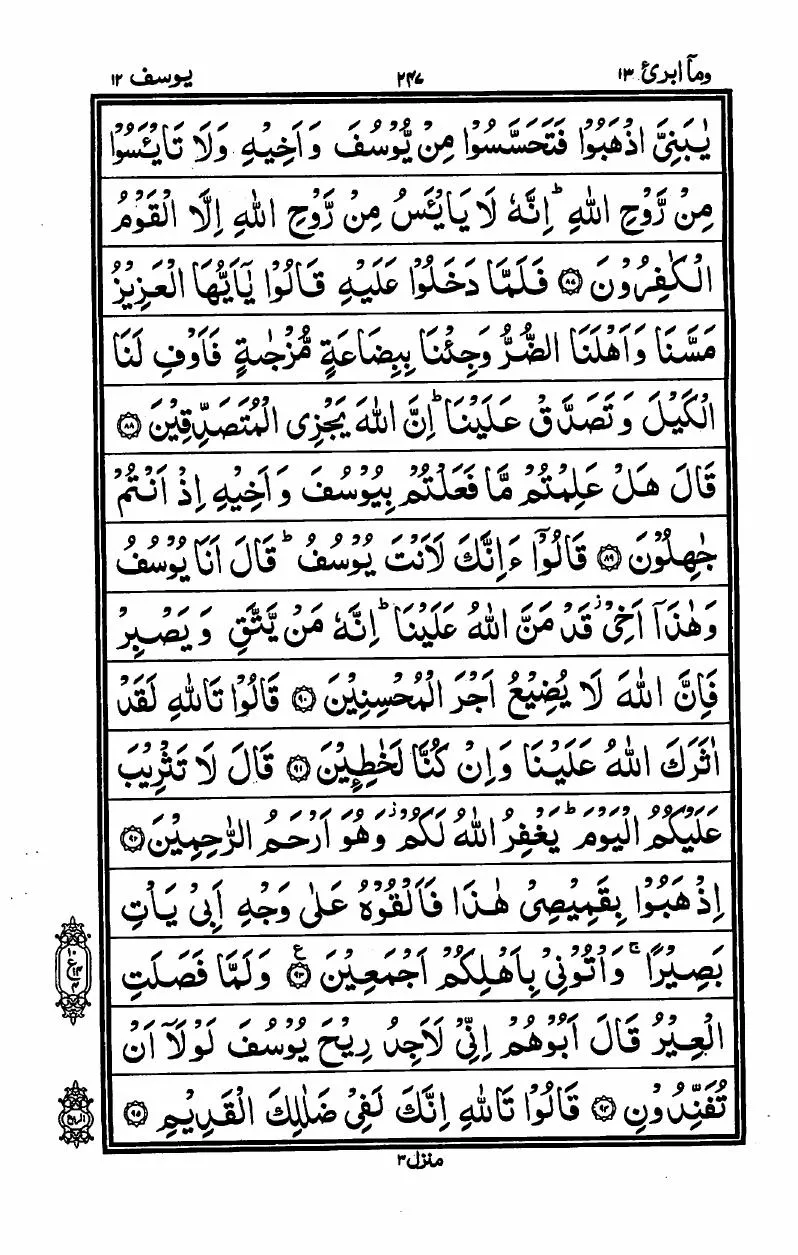 وماۤ ابرئ ١٣ ٢٤٧ يوسف ١٢
يٰبَنِىَّ اذْهَبُوْا فَتَحَسَّسُوْا مِنْ يُّوْسُفَ وَاَخِيْهِ وَلَا تَايْـَٔسُوْا
مِنْ رَّوْحِ اللهِ ؕ اِنَّهٗ لَا يَايْـَٔسُ مِنْ رَّوْحِ اللهِ اِلَّا الْقَوْمُ
الْكٰفِرُوْنَ ۝٨٧ فَلَمَّا دَخَلُوْا عَلَيْهِ قَالُوْا يٰۤاَيُّهَا الْعَزِيْزُ
مَسَّنَا وَاَهْلَنَا الضُّرُّ وَجِئْنَا بِبِضَاعَةٍ مُّزْجٰىةٍ فَاَوْفِ لَنَا
الْكَيْلَ وَتَصَدَّقْ عَلَيْنَا ؕ اِنَّ اللهَ يَجْزِى الْمُتَصَدِّقِيْنَ ۝٨٨
قَالَ هَلْ عَلِمْتُمْ مَّا فَعَلْتُمْ بِيُوْسُفَ وَاَخِيْهِ اِذْ اَنْتُمْ
جٰهِلُوْنَ ۝٨٩ قَالُوْۤا ءَاِنَّكَ لَاَنْتَ يُوْسُفُ ؕ قَالَ اَنَا يُوْسُفُ
وَهٰذَاۤ اَخِىْ ز قَدْ مَنَّ اللهُ عَلَيْنَا ؕ اِنَّهٗ مَنْ يَّتَّقِ وَيَصْبِرْ
فَاِنَّ اللهَ لَا يُضِيْعُ اَجْرَ الْمُحْسِنِيْنَ ۝٩٠ قَالُوْا تَاللهِ لَقَدْ
اٰثَرَكَ اللهُ عَلَيْنَا وَاِنْ كُنَّا لَخٰطِـِٕيْنَ ۝٩١ قَالَ لَا تَثْرِيْبَ
عَلَيْكُمُ الْيَوْمَ ؕ يَغْفِرُ اللهُ لَكُمْ ز وَهُوَ اَرْحَمُ الرّٰحِمِيْنَ ۝٩٢
اِذْهَبُوْا بِقَمِيْصِىْ هٰذَا فَاَلْقُوْهُ عَلٰى وَجْهِ اَبِىْ يَاْتِ
بَصِيْرًا ۚ وَاْتُوْنِىْ بِاَهْلِكُمْ اَجْمَعِيْنَ ۝٩٣ ع وَلَمَّا فَصَلَتِ
الْعِيْرُ قَالَ اَبُوْهُمْ اِنِّىْ لَاَجِدُ رِيْحَ يُوْسُفَ لَوْلَاۤ اَنْ
تُفَنِّدُوْنِ ۝٩٤ قَالُوْا تَاللهِ اِنَّكَ لَفِىْ ضَلٰلِكَ الْقَدِيْمِ ۝٩٥
منزل ٣